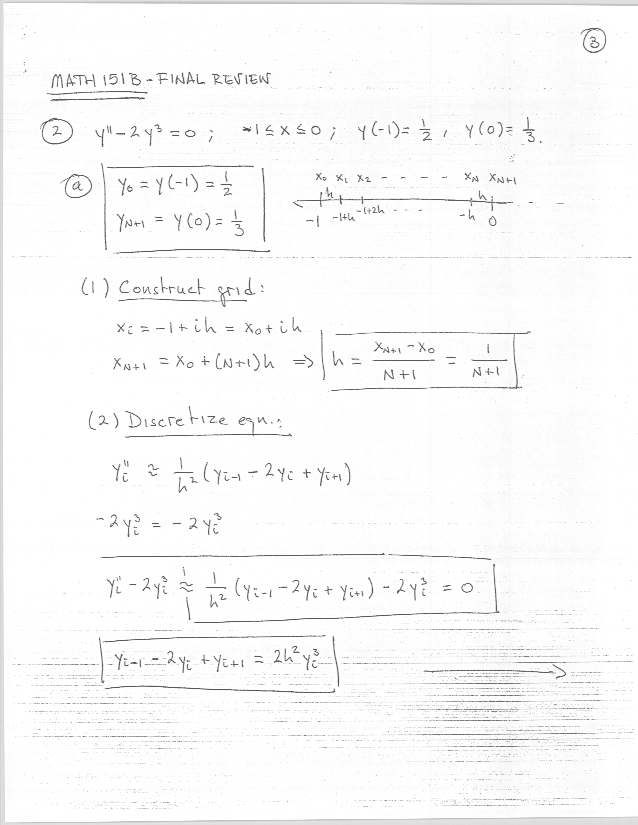 3
MATH 151B - FINAL REVIEW
2 y'' - 2y³ = 0 ; -1 ≤ x ≤ 0 ; y(-1) = 1/2 , y(0) = 1/3.
a y₀ = y(-1) = 1/2
y_{N+1} = y(0) = 1/3
x₀ x₁ x₂ - - - - x_N x_{N+1}
h h
-1 -1+h -1+2h - - - -h 0
(1) Construct grid:
x_i = -1 + ih = x₀ + ih
x_{N+1} = x₀ + (N+1)h ⇒ h = (x_{N+1} - x₀)/(N+1) = 1/(N+1)
(2) Discretize eqn.:
y_i'' ≈ 1/h² (y_{i-1} - 2y_i + y_{i+1})
-2y_i³ = -2y_i³
y_i'' - 2y_i³ ≈ 1/h² (y_{i-1} - 2y_i + y_{i+1}) - 2y_i³ = 0
y_{i-1} - 2y_i + y_{i+1} = 2h² y_i³